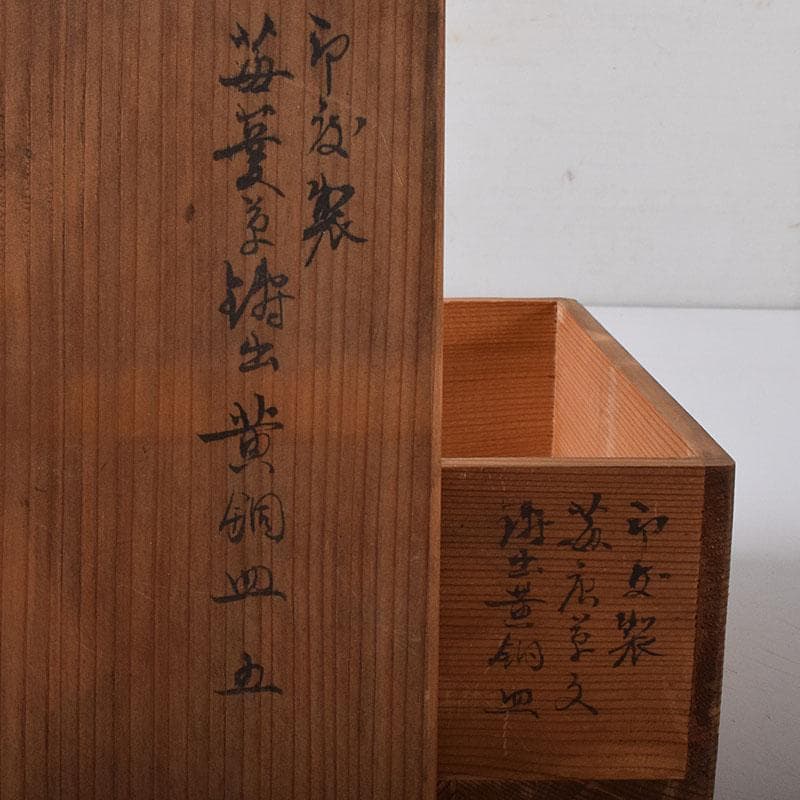 印度製
莓蔓草鋳出黄銅皿 五
印度製
莓唐草文
鋳出黄銅皿